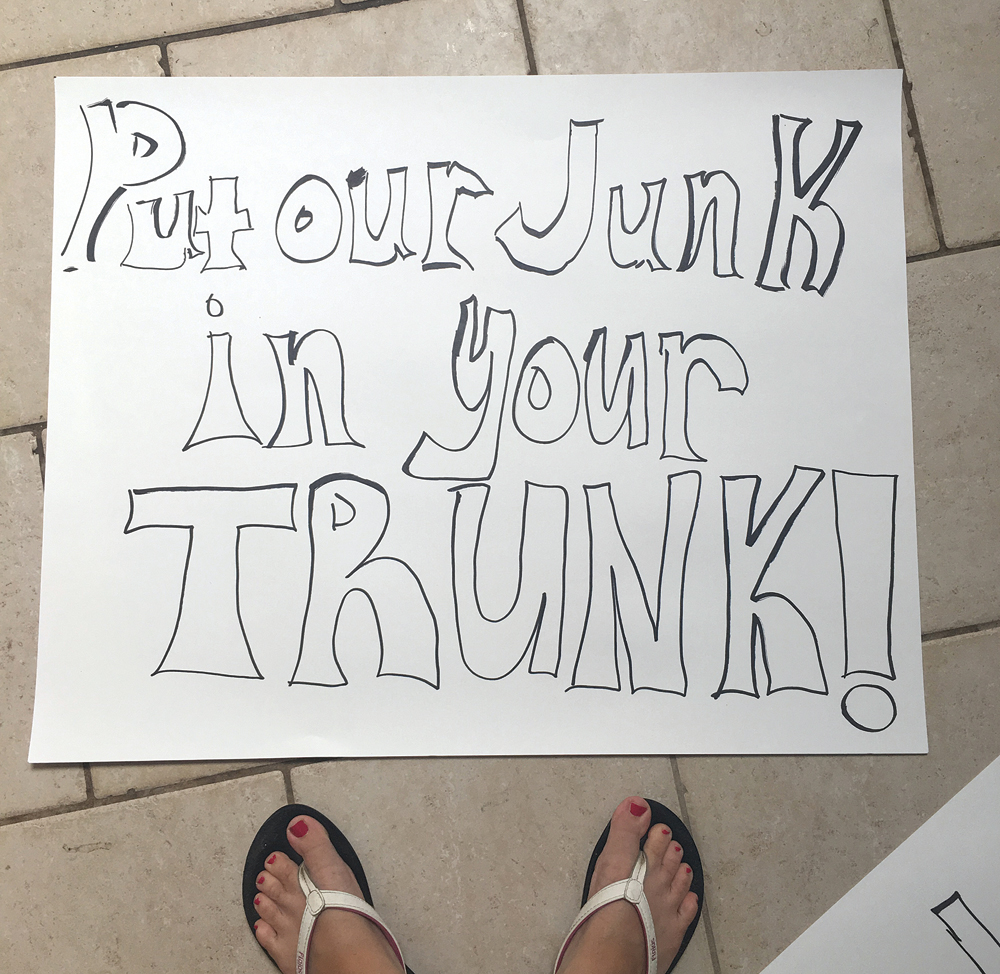 Put our Junk
in your
TRUNK!